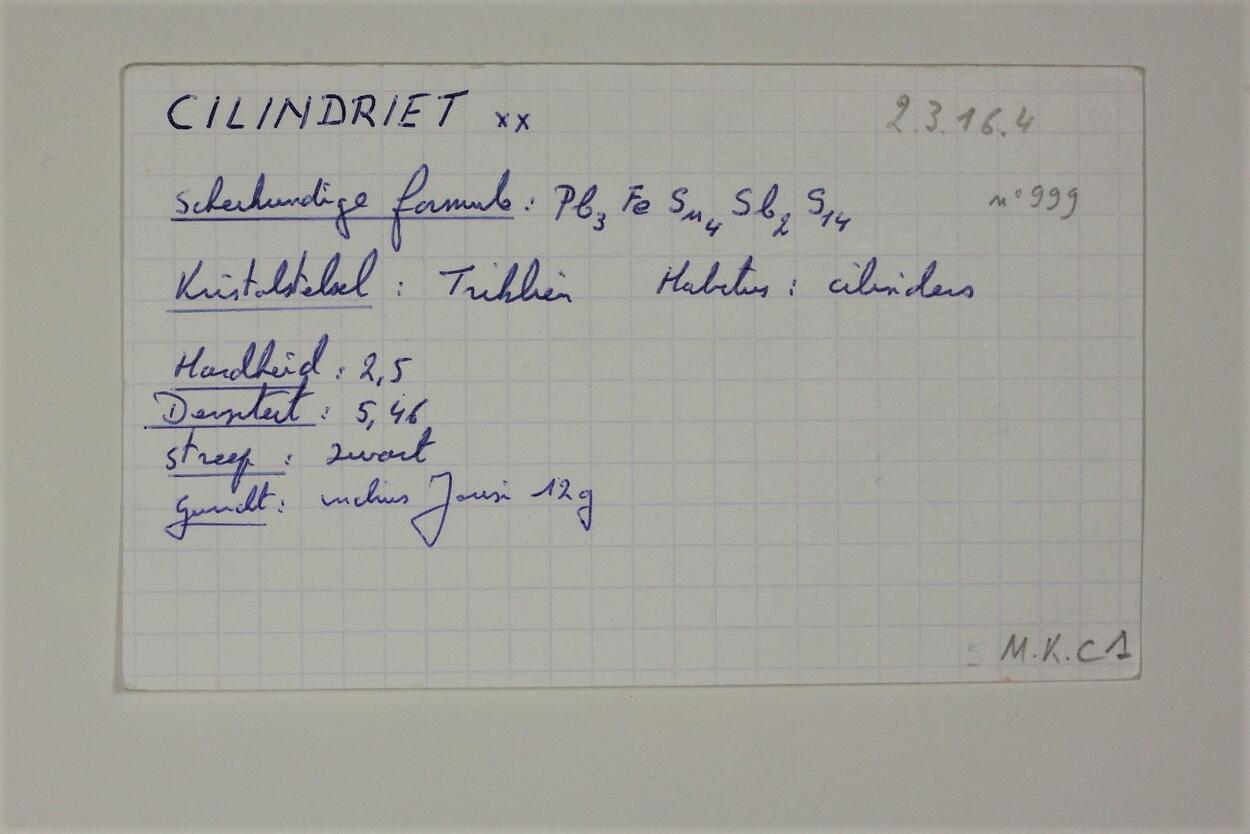 CILINDRIET xx
2.3.16.4
Scheikundige formule: Pb3 Fe Sn4 Sb2 S14
n° 999
Kristalstelsel : Triklien Habitus : cilinders
Hardheid : 2,5
Densiteit : 5,46
streep : zwart
gewicht : inclus Jousi 12g
M.K.C1